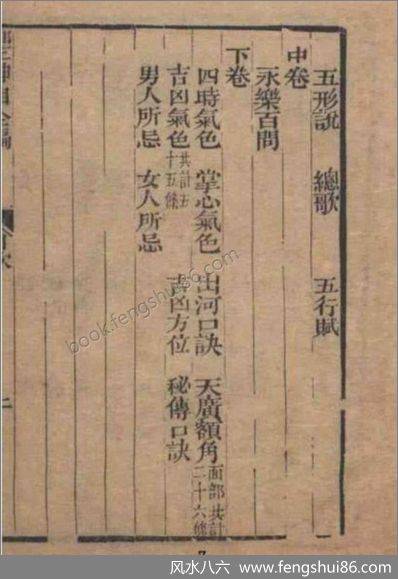 五形說 總歌 五行賦
中卷
永樂百問
下卷
四時氣色 掌心氣色 出河口訣 天廣額角 面部共計二十六條
吉凶氣色 共計五十五條 吉凶方位 秘傳口訣
男人所忌 女人所忌
二
book.fengshui86.com
风水八六 www.fengshui86.com